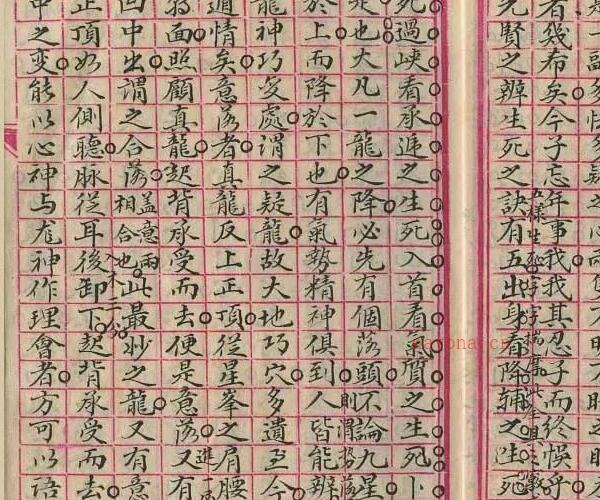 者幾希矣今子忘年事我我其忍子而終悞乎
先賢之辨生死之訣有五出身看降輔之生死
死過峽看承遞之生死入首看氣質之生死卜
是也大凡一龍之降必先有個落頭不論九星
於上而降於下也有氣勢精神俱到人皆能辨
龍神巧变處謂之疑龍故大地巧穴多遺至今
遁情矣意落者真龍反上正頂從星峯之肩腰
面照顧真龍起背承受而去便是意落又有
回中出謂之合落蓋意兩相合也此最妙之龍又有意
入木三分
正頂如人側聽脈從耳後卸下起背承受而去
中之变能以心神与龙神作理會者方可以語